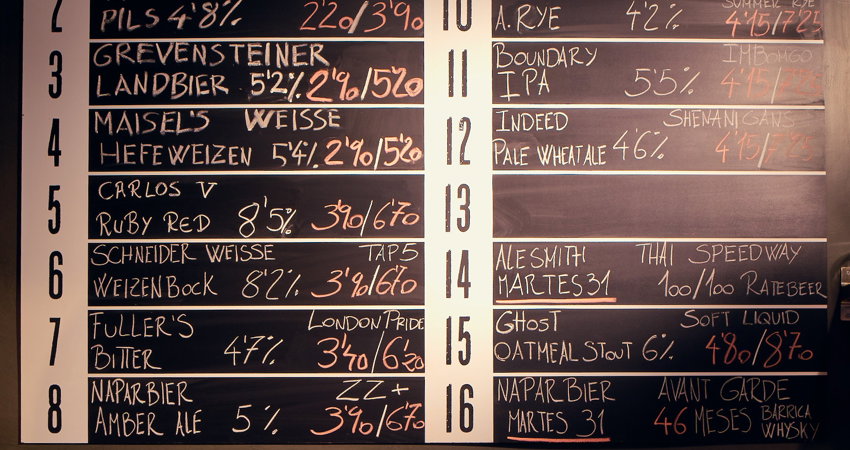 2
PILS 4'8% 2'20/3'90
3
GREVENSTEINER
LANDBIER 5'2% 2'90/5'20
4
MAISEL'S WEISSE
HEFEWEIZEN 5'4% 2'90/5'20
5
CARLOS V
RUBY RED 8'5% 3'90/6'70
6
SCHNEIDER WEISSE TAP5
WEIZENBOCK 8'2% 3'90/6'70
7
FULLER'S LONDON PRIDE
BITTER 4'7% 3'40/6'20
8
NAPARBIER ZZ+
AMBER ALE 5% 3'90/6'70
10
SUMMER RYE
A. RYE 4'2% 4'15/7'25
11
BOUNDARY IMBONGO
IPA 5'5% 4'15/7'25
12
INDEED SHENANIGANS
PALE WHEAT ALE 4'6% 4'15/7'25
13
14
ALESMITH THAI SPEEDWAY
MARTES 31 100/100 RATEBEER
15
GHOST SOFT LIQUID
OATMEAL STOUT 6% 4'80/8'70
16
NAPARBIER AVANT GARDE
MARTES 31 46 MESES BARRICA
WHYSKY